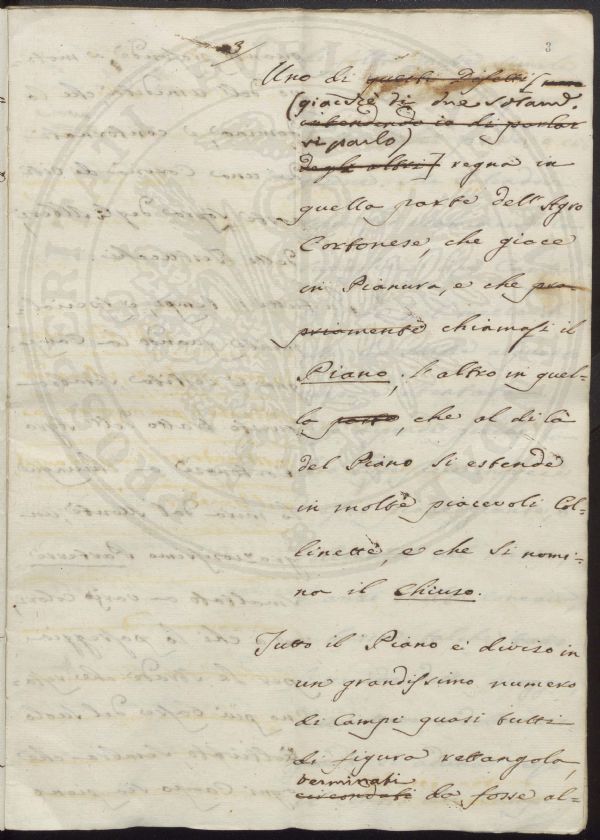 3/
3
Uno di questi Difetti [non
(giacchè di due soltanto
intendendo io di parlar
si parlo)
degli altri] regna in
quella parte dell' Agro
Cortonese, che giace
in Pianura, e che pro
priamente chiamasi il
Piano; l'altro in quel-
la parte, che al di là
del Piano si estende
in molte piacevoli Col-
linette, e che si nomi-
na il Chiuso.
Tutto il Piano è diviso in
un grandissimo numero
di Campi quasi tutti
di figura rettangola,
terminati
circondati da fosse al-